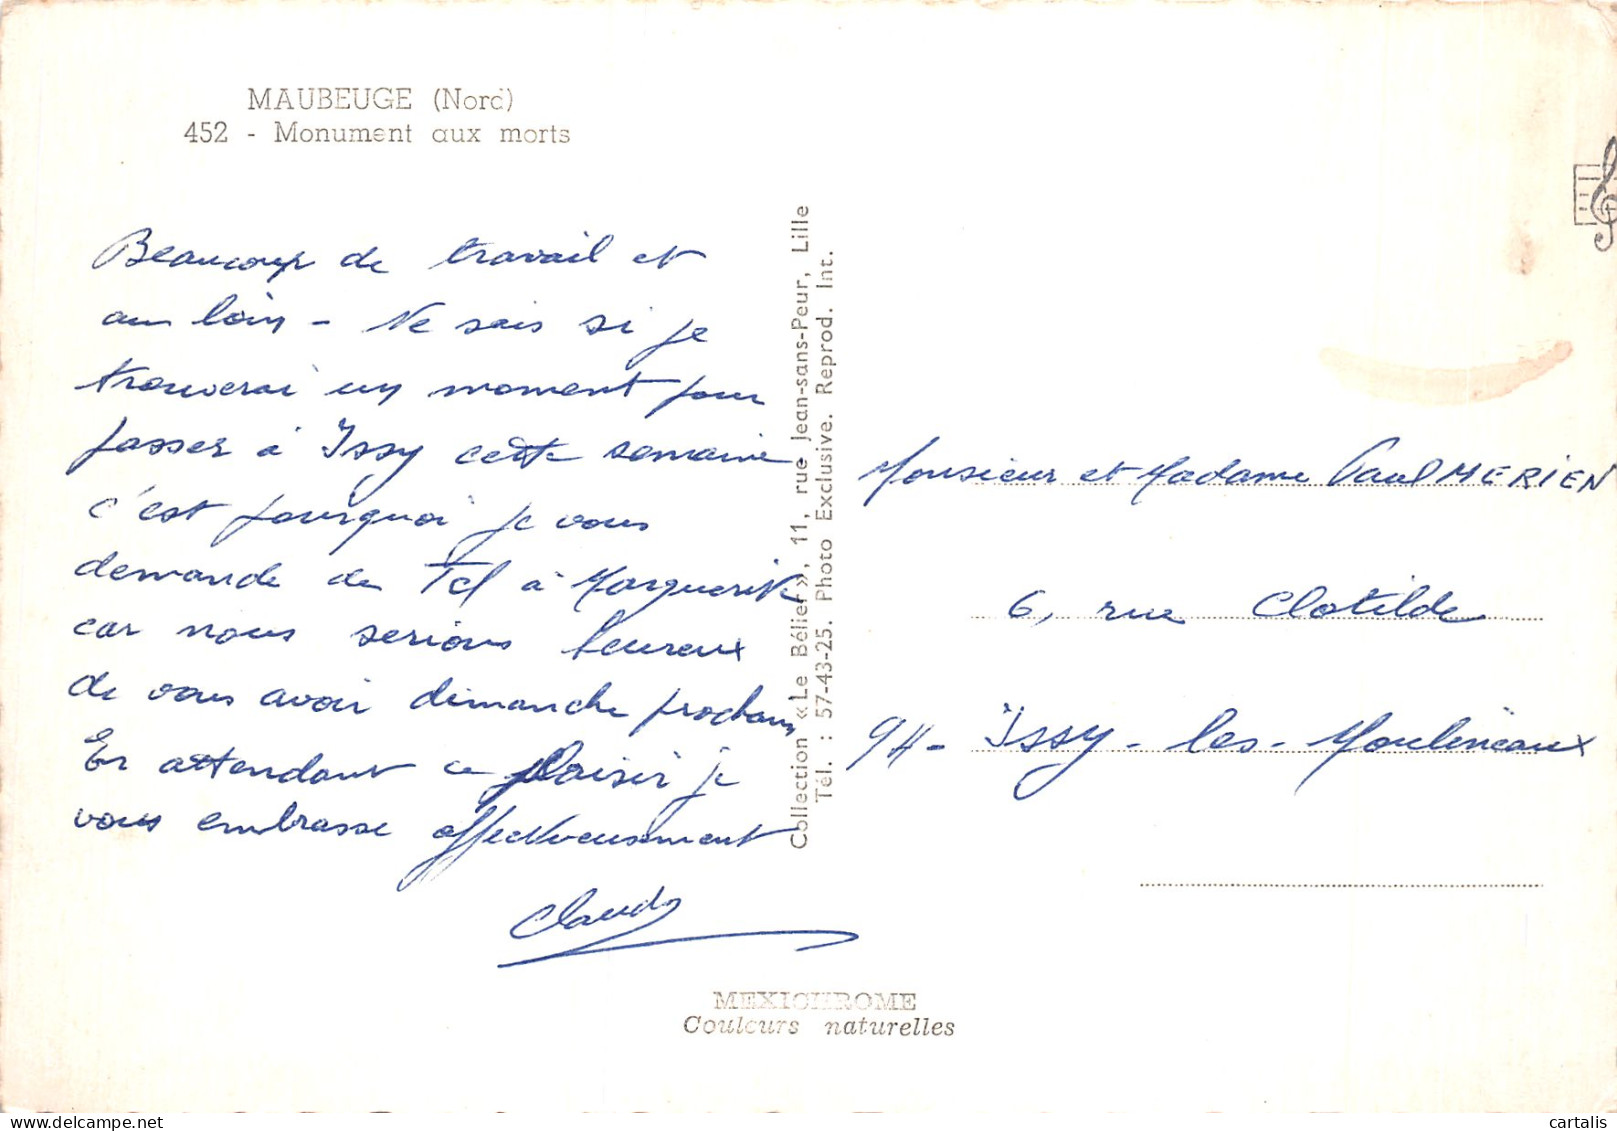 MAUBEUGE (Nord)
452 - Monument aux morts
Beaucoup de travail et
au loin - Ne sais si je
trouverai un moment pour
passer à Issy cette semaine
c'est pourquoi je vous
demande de Tel à Marguerite
car nous serions heureux
de vous avoir dimanche prochain
En attendant ce plaisir je
vous embrasse affectueusement
Claude
Collection «Le Bélier», 11, rue Jean-sans-Peur, Lille
Tél. : 57-43-25. Photo Exclusive. Reprod. Int.
Monsieur et Madame Paul MERIEN
6, rue Clotilde
94 - Issy - les - Moulineaux
MEXICHROME
Couleurs naturelles
cartalis
www.delcampe.net